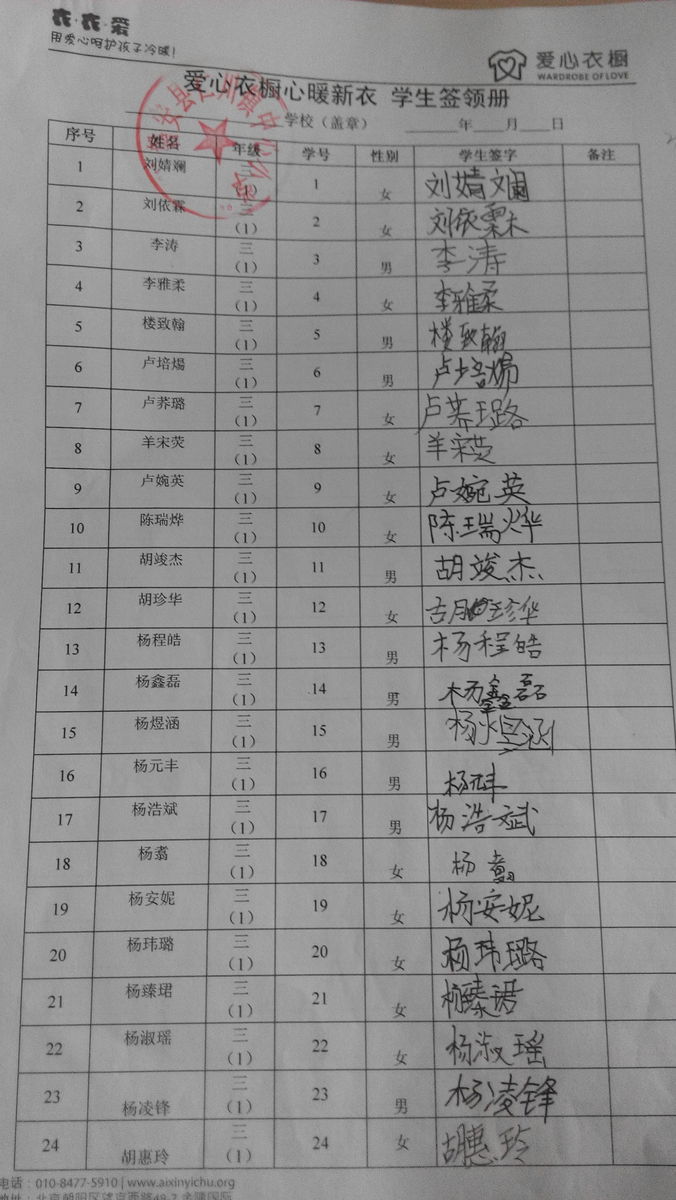 衣·衣·爱
用爱心呵护孩子冷暖!
爱心衣橱
WARDROBE OF LOVE
爱心衣橱心暖新衣 学生签领册
学校（盖章） 年 月 日
序号 姓名 年级 学号 性别 学生签字 备注
1 刘婧斓 三（1） 1 女 刘婧斓
2 刘依霖 三（1） 2 女 刘依霖
3 李涛 三（1） 3 男 李涛
4 李雅柔 三（1） 4 女 李雅柔
5 楼致翰 三（1） 5 男 楼致翰
6 卢培煬 三（1） 6 男 卢培煬
7 卢荞璐 三（1） 7 女 卢荞璐
8 羊宋荧 三（1） 8 女 羊宋荧
9 卢婉英 三（1） 9 女 卢婉英
10 陈瑞烨 三（1） 10 女 陈瑞烨
11 胡竣杰 三（1） 11 男 胡竣杰
12 胡珍华 三（1） 12 女 胡珍华
13 杨程皓 三（1） 13 男 杨程皓
14 杨鑫磊 三（1） 14 男 杨鑫磊
15 杨煜涵 三（1） 15 男 杨煜涵
16 杨元丰 三（1） 16 男 杨元丰
17 杨浩斌 三（1） 17 男 杨浩斌
18 杨翥 三（1） 18 女 杨翥
19 杨安妮 三（1） 19 女 杨安妮
20 杨玮璐 三（1） 20 女 杨玮璐
21 杨臻珺 三（1） 21 女 杨臻珺
22 杨淑瑶 三（1） 22 女 杨淑瑶
23 杨凌锋 三（1） 23 男 杨凌锋
24 胡惠玲 三（1） 24 女 胡惠玲
电话：010-8477-5910 | www.aixinyichu.org